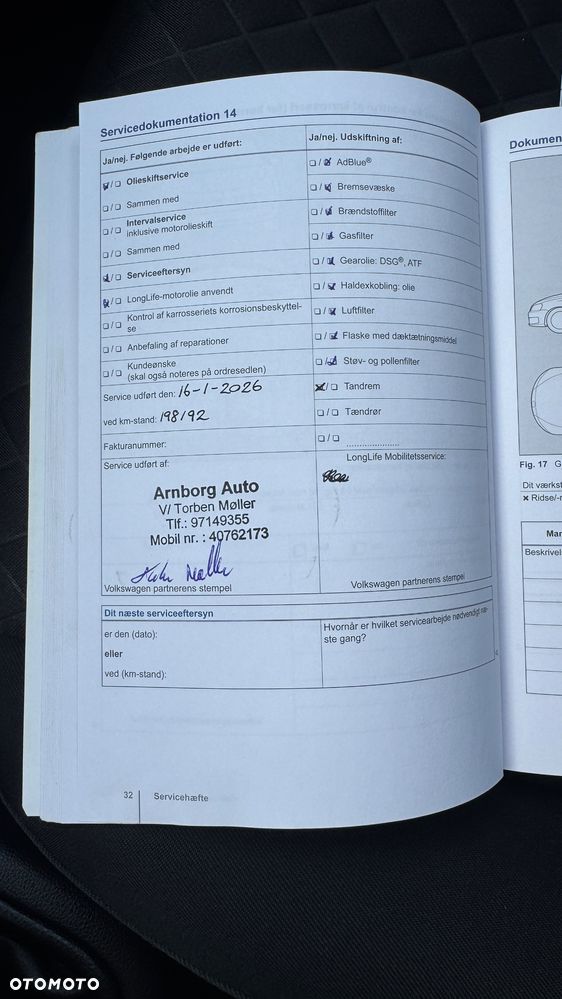 Servicedokumentation 14
Ja/nej. Følgende arbejde er udført:
Ja/nej. Udskiftning af:
❏/❏ Olieskiftservice
❏/❏ Sammen med
❏/❏ Intervalservice
inklusive motorolieskift
❏/❏ Sammen med
❏/❏ Serviceeftersyn
❏/❏ LongLife-motorolie anvendt
❏/❏ Kontrol af karrosseriets korrosionsbeskyttel-
se
❏/❏ Anbefaling af reparationer
❏/❏ Kundeønske
(skal også noteres på ordresedlen)
❏/❏ AdBlue®
❏/❏ Bremsevæske
❏/❏ Brændstoffilter
❏/❏ Gasfilter
❏/❏ Gearolie: DSG®, ATF
❏/❏ Haldexkobling: olie
❏/❏ Luftfilter
❏/❏ Flaske med dæktætningsmiddel
❏/❏ Støv- og pollenfilter
❏/❏ Tandrem
❏/❏ Tændrør
❏/❏ .....................
Service udført den: 16-1-2026
ved km-stand: 198192
Fakturanummer:
Service udført af:
Arnborg Auto
V/ Torben Møller
Tlf.: 97149355
Mobil nr. : 40762173
Møller
Volkswagen partnerens stempel
LongLife Mobilitetsservice:
Volkswagen partnerens stempel
Dit næste serviceeftersyn
er den (dato):
eller
ved (km-stand):
Hvornår er hvilket servicearbejde nødvendigt næ-
ste gang?
32
Servicehæfte
Dokumen
Fig. 17 G
Dit værkst
✕ Ridse/-r
Mar
Beskrivel
OTOMOTO